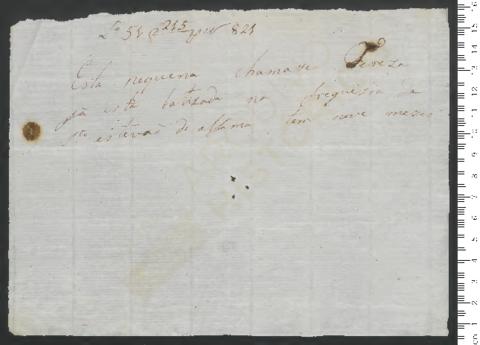 Lo 51 f 215 nº 821
Esta piquena chamase Tereza
ja está batizada na freguezia de
Sto estevaõ de alfama tem nove mezes